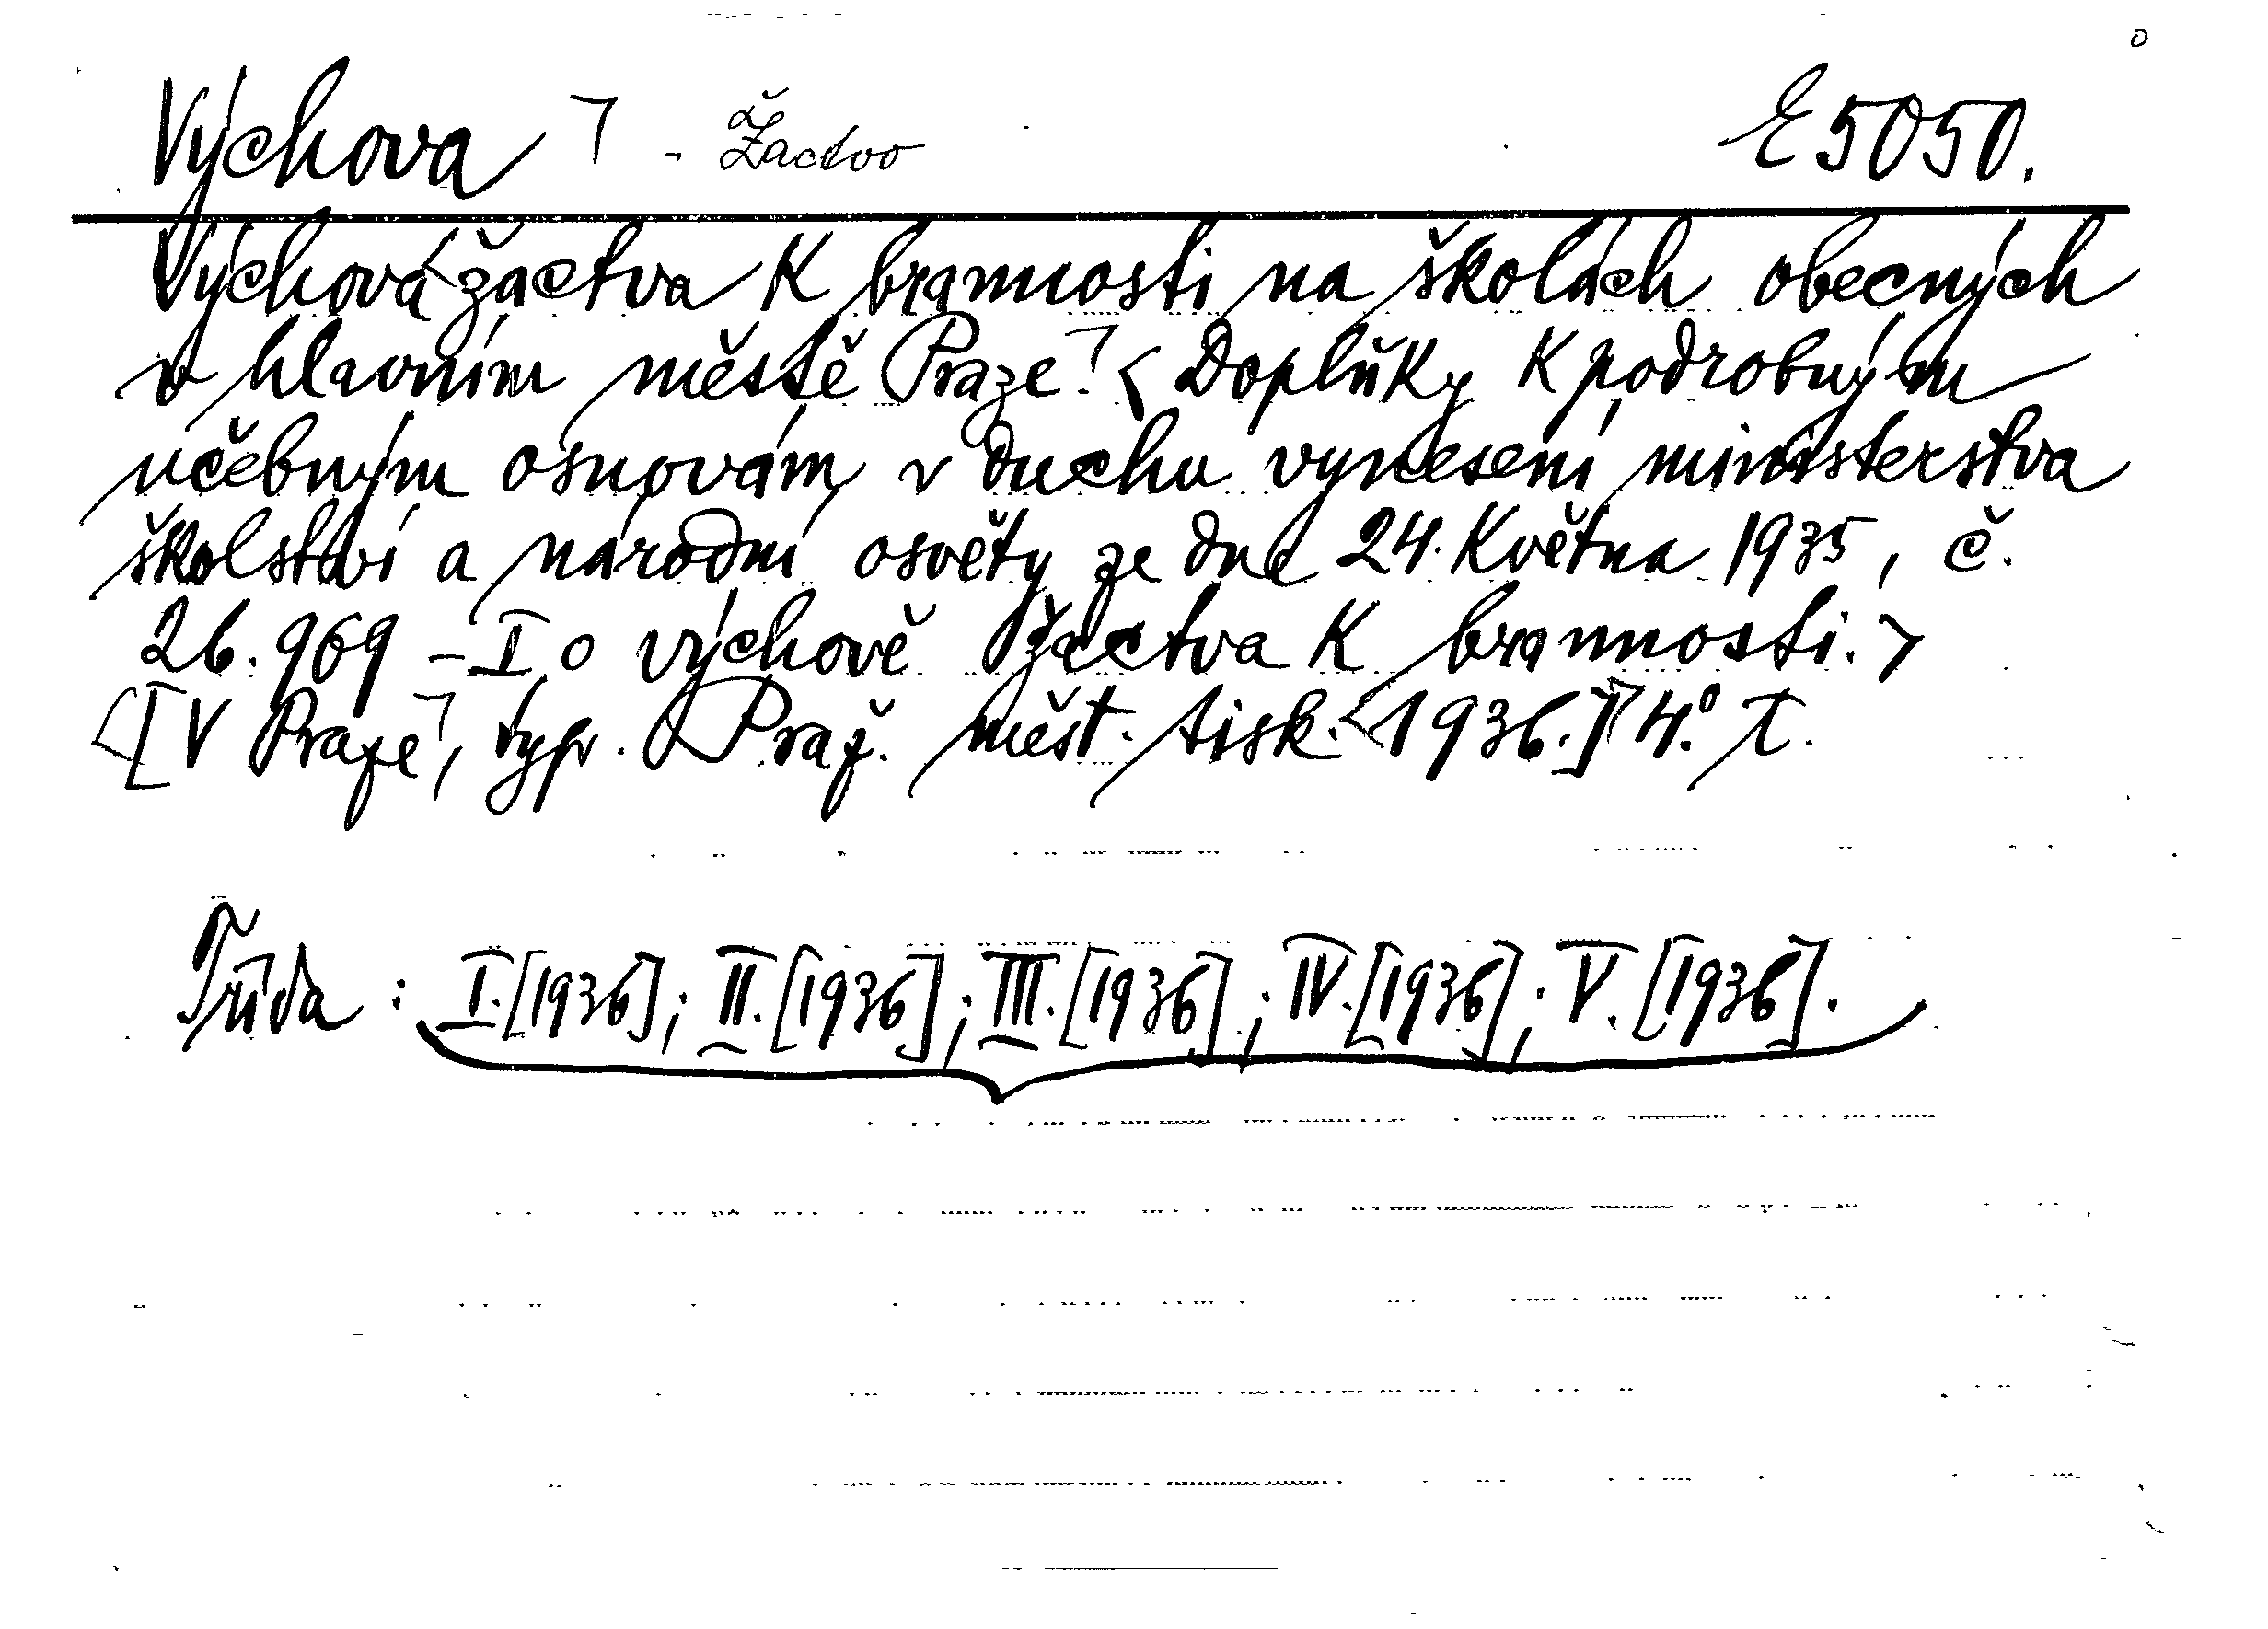 Výchova ⌝ - Žactvo E 5050.
Výchova žactva k brannosti na školách obecných
v hlavním městě Praze.⌝ < Doplňky k podrobným
učebným osnovám v duchu vynesení ministerstva
školství a národní osvěty ze dne 24. května 1935, č.
26.969 - I o výchově žactva k brannosti. >
<[V Praze⌝, typ. Praž. měst. tisk. <1936.]⌝ 4.° T.
Třída : I. [1936]; II. [1936]; III. [1936]; IV. [1936]; V. [1936].